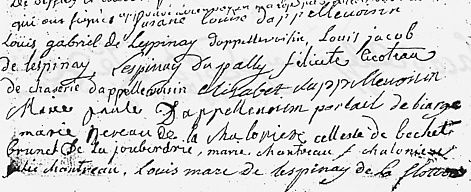 qui ont
Susane louise dappellevoisin
Louis gabriel de lespinay dappellevoisin, Louis jacob
de lespinay, Lespinay du pally felicité
de chagerie dappellevoisin Elisabet dappellevoisin
Marie paule Dappellevoisin portail de
marie nereau de la Maloniere celleste de bechet
brunet de la jouberdrie, marie Montreau f chaloniere
julie Montreau, louis marc de lespinay de la